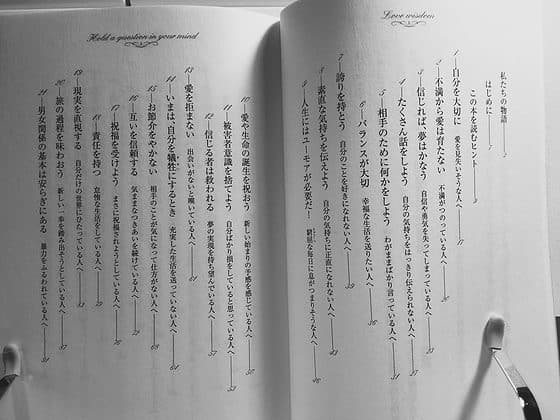 Love wisdom
私たちの物語
はじめに
この本を読むヒント
1 自分を大切に 愛を見失いそうな人へ
2 不満から愛は育たない 不満がつのっている人へ
3 信じれば、夢はかなう 自信や勇気を失ってしまっている人へ
4 たくさん話をしよう 自分の気持ちをはっきり伝えられない人へ
5 相手のために何かをしよう わがままばかり言っている人へ
6 バランスが大切 幸福な生活を送りたい人へ
7 誇りを持とう 自分のことを好きになれない人へ
8 素直な気持ちを伝えよう 自分の気持ちに正直になれない人へ
9 人生にはユーモアが必要だ! 窮屈な毎日に息がつまりそうな人へ
Hold a question in your mind
10 愛や生命の誕生を祝おう 新しい始まりの予感を感じている人へ
11 被害者意識を捨てよう 自分ばかり損をしていると思っている人へ
12 信じる者は救われる 夢の実現を待ち望んでいる人へ
13 愛を拒まない 出会いがないと嘆いている人へ
14 いまは、自分を犠牲にするとき 充実した生活を送っていない人へ
15 お節介をやかない 相手のことが気になって仕方がない人へ
16 互いを信頼する 気ままなつきあいを続けている人へ
17 祝福を受けよう まさに祝福されようとしている人へ
18 責任を持つ 怠惰な生活をしている人へ
19 現実を直視する 自分だけの世界にひたっている人へ
20 旅の過程を味わおう 新しい一歩を踏み出そうとしている人へ
21 男女関係の基本は安らぎにある 暴力をふるわれている人へ